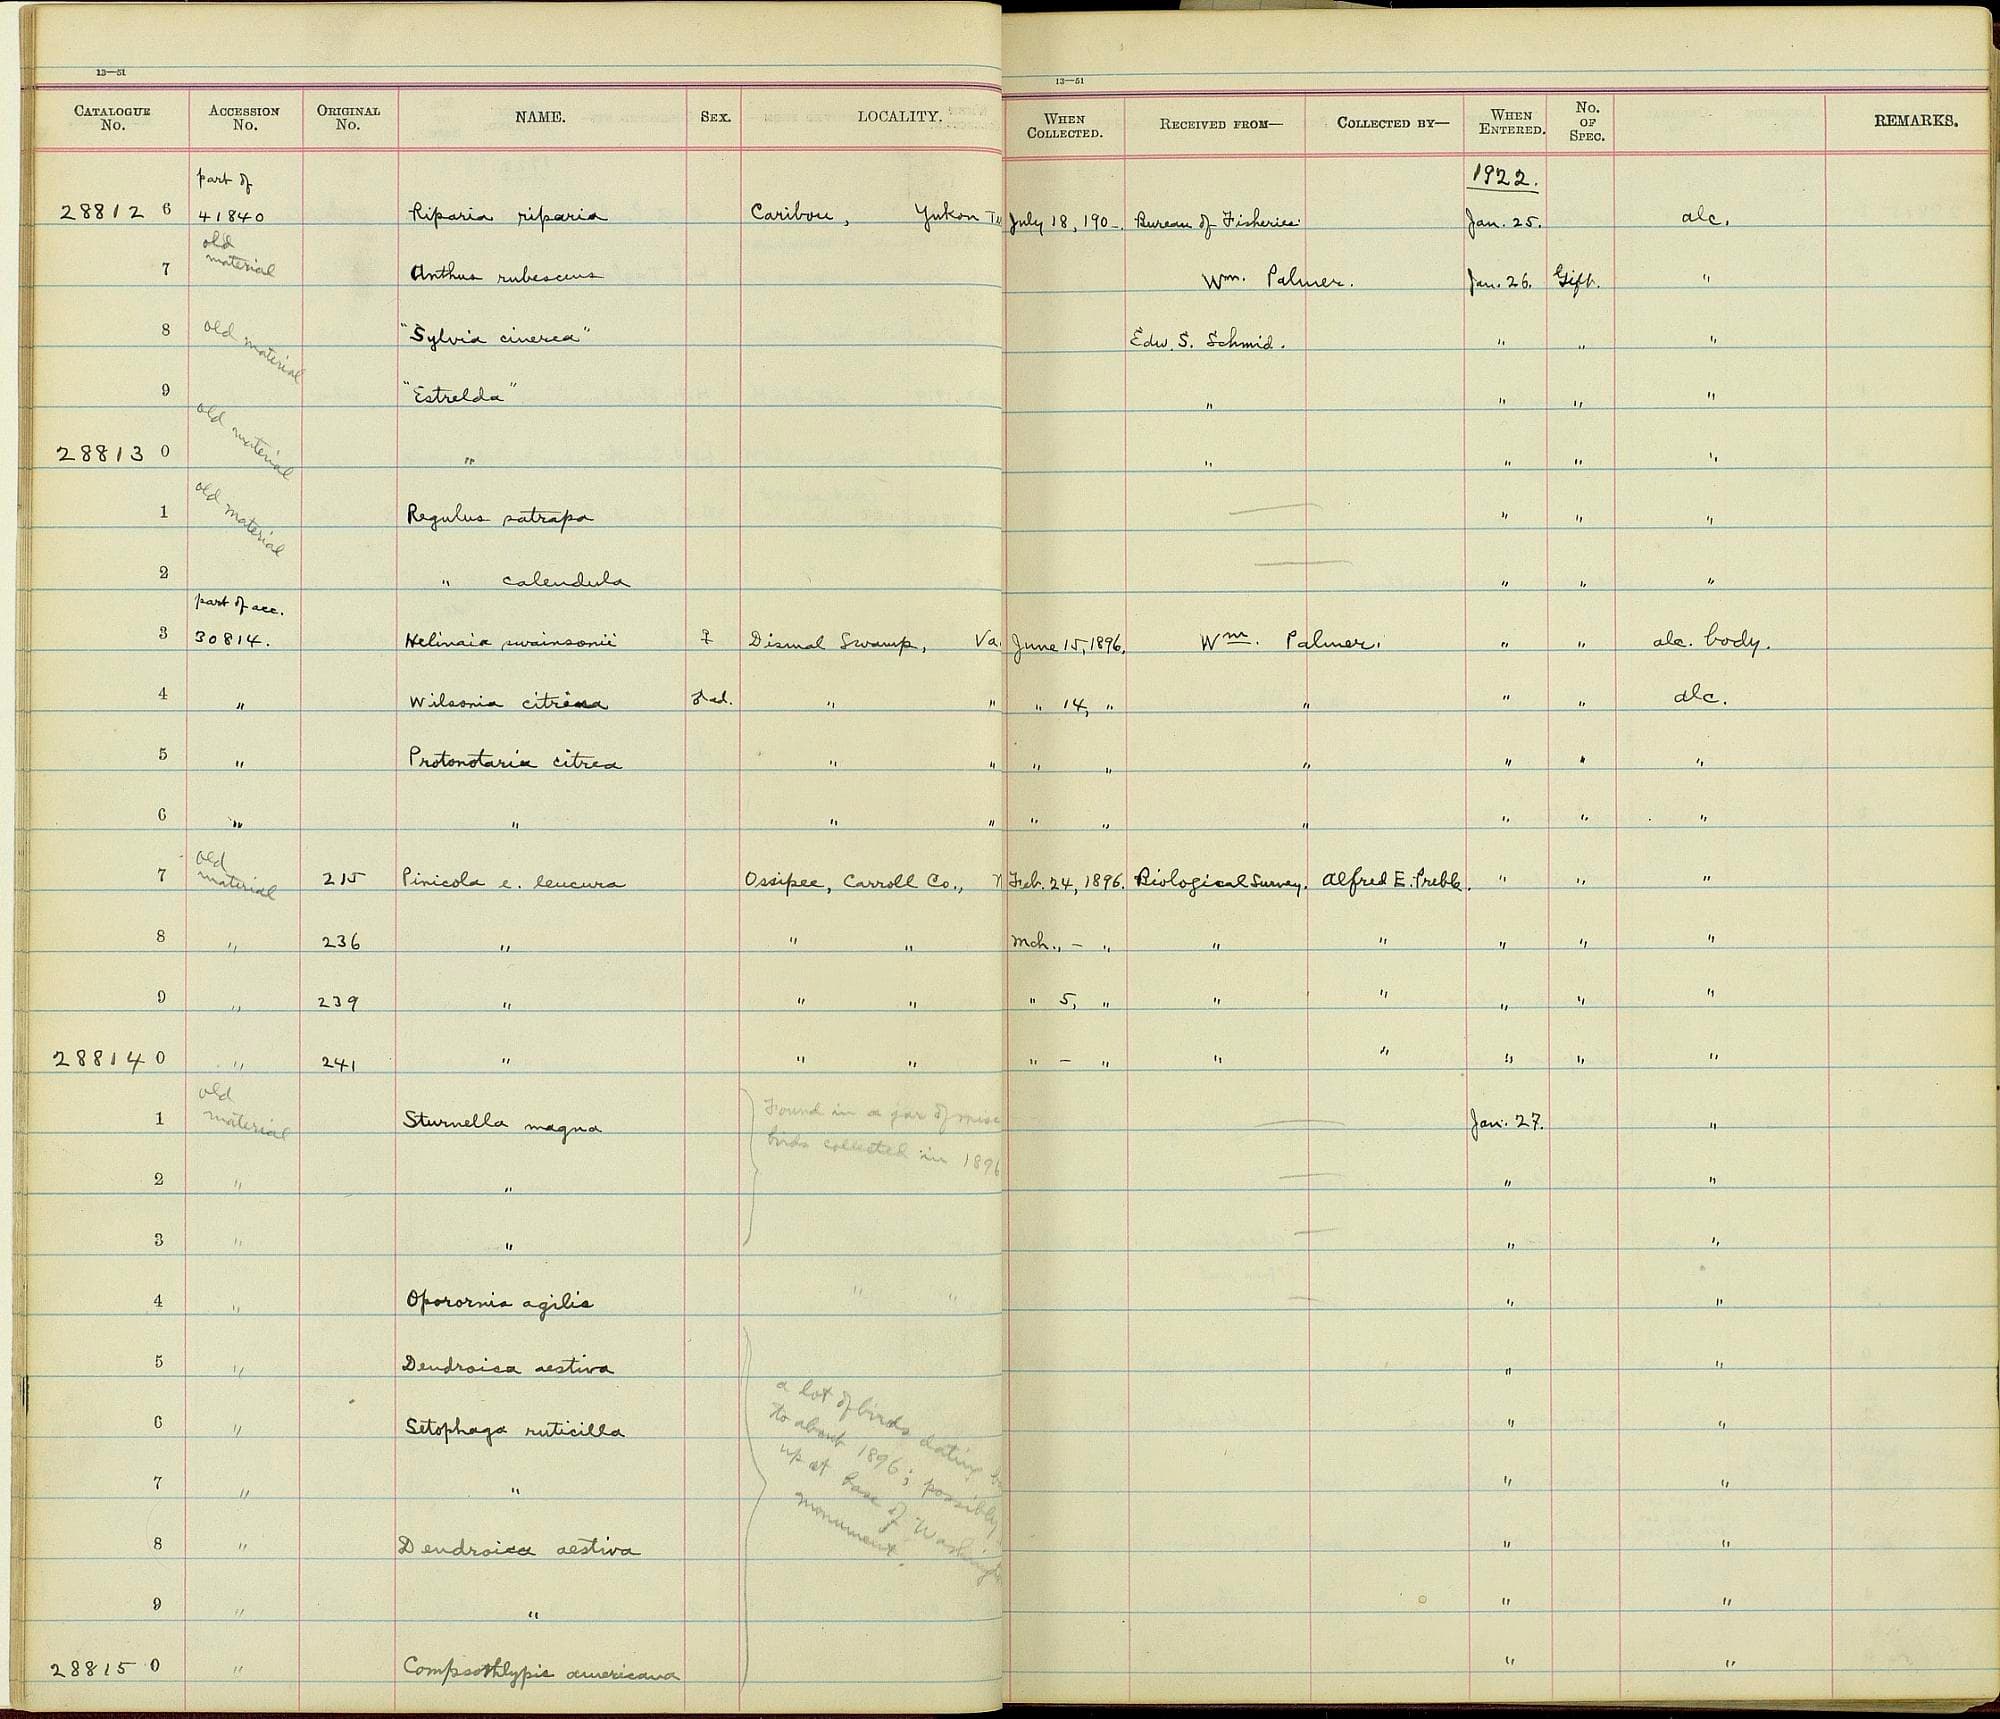 13—51
13—51
CATALOGUE No. ACCESSION No. ORIGINAL No. NAME. SEX. LOCALITY. WHEN COLLECTED. RECEIVED FROM— COLLECTED BY— WHEN ENTERED. No. OF SPEC. REMARKS.
part of 1922.
28812 6 41840 Riparia riparia Caribou, Yukon July 18, 190-. Bureau of Fisheries Jan. 25. alc.
7 old material Anthus rubescens Wm. Palmer. Jan. 26. Gift. "
8 old material "Sylvia cinerea" Edw. S. Schmid. " " "
9 "Estrelda" " " " "
28813 0 old material " " " " "
1 old material Regulus satrapa — " " "
2 " calendula — " " "
part of acc.
3 30814. Helinaia swainsonii ♀ Dismal Swamp, Va. June 15, 1896. Wm. Palmer. " " alc. body.
4 " Wilsonia citrina ♂ad. " " " 14, " " " " alc.
5 " Protonotaria citrea " " " " " " " "
6 " " " " " " " " " "
7 old material 215 Pinicola e. leucura Ossipee, Carroll Co., Feb. 24, 1896. Biological Survey. Alfred E. Preble. " " "
8 " 236 " " " Mch., — " " " " " "
9 " 239 " " " " 5, " " " " " "
28814 0 " 241 " " " " — " " " " " "
1 old material Sturnella magna Found in a jar of misc — Jan. 27. "
birds collected in 1896
2 " " — " "
3 " " — " "
4 " Oporornis agilis " " — " "
5 " Dendroica aestiva " "
a lot of birds dating
6 " Setophaga ruticilla to about 1896; possibly " "
7 " " up at base of " "
monument.
8 " Dendroica aestiva " "
9 " " " "
28815 0 " Compsothlypis americana " "